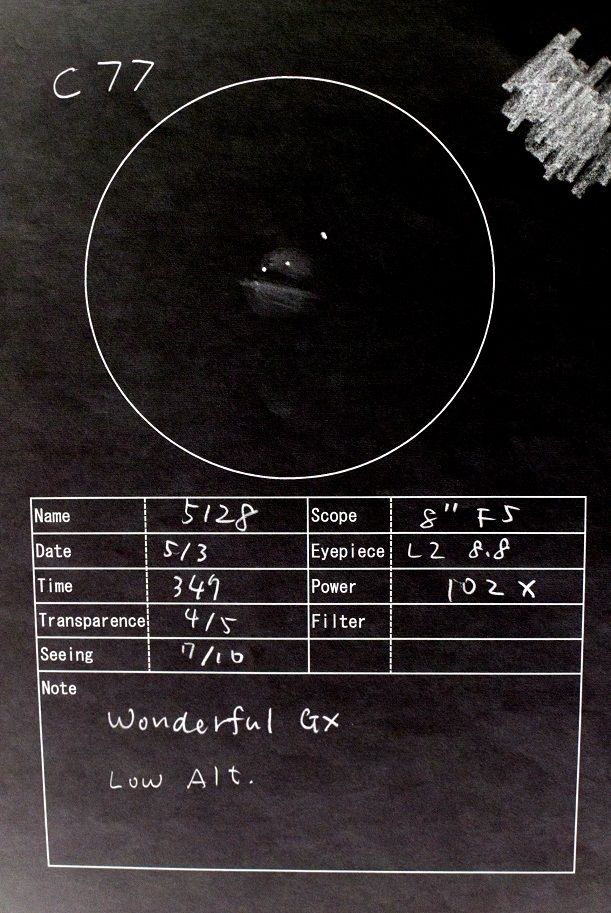 C77
Name 5128 Scope 8" F5
Date 5/3 Eyepiece LZ 8.8
Time 349 Power 102 x
Transparence 4/5 Filter
Seeing 7/10
Note
Wonderful Gx
Low Alt.